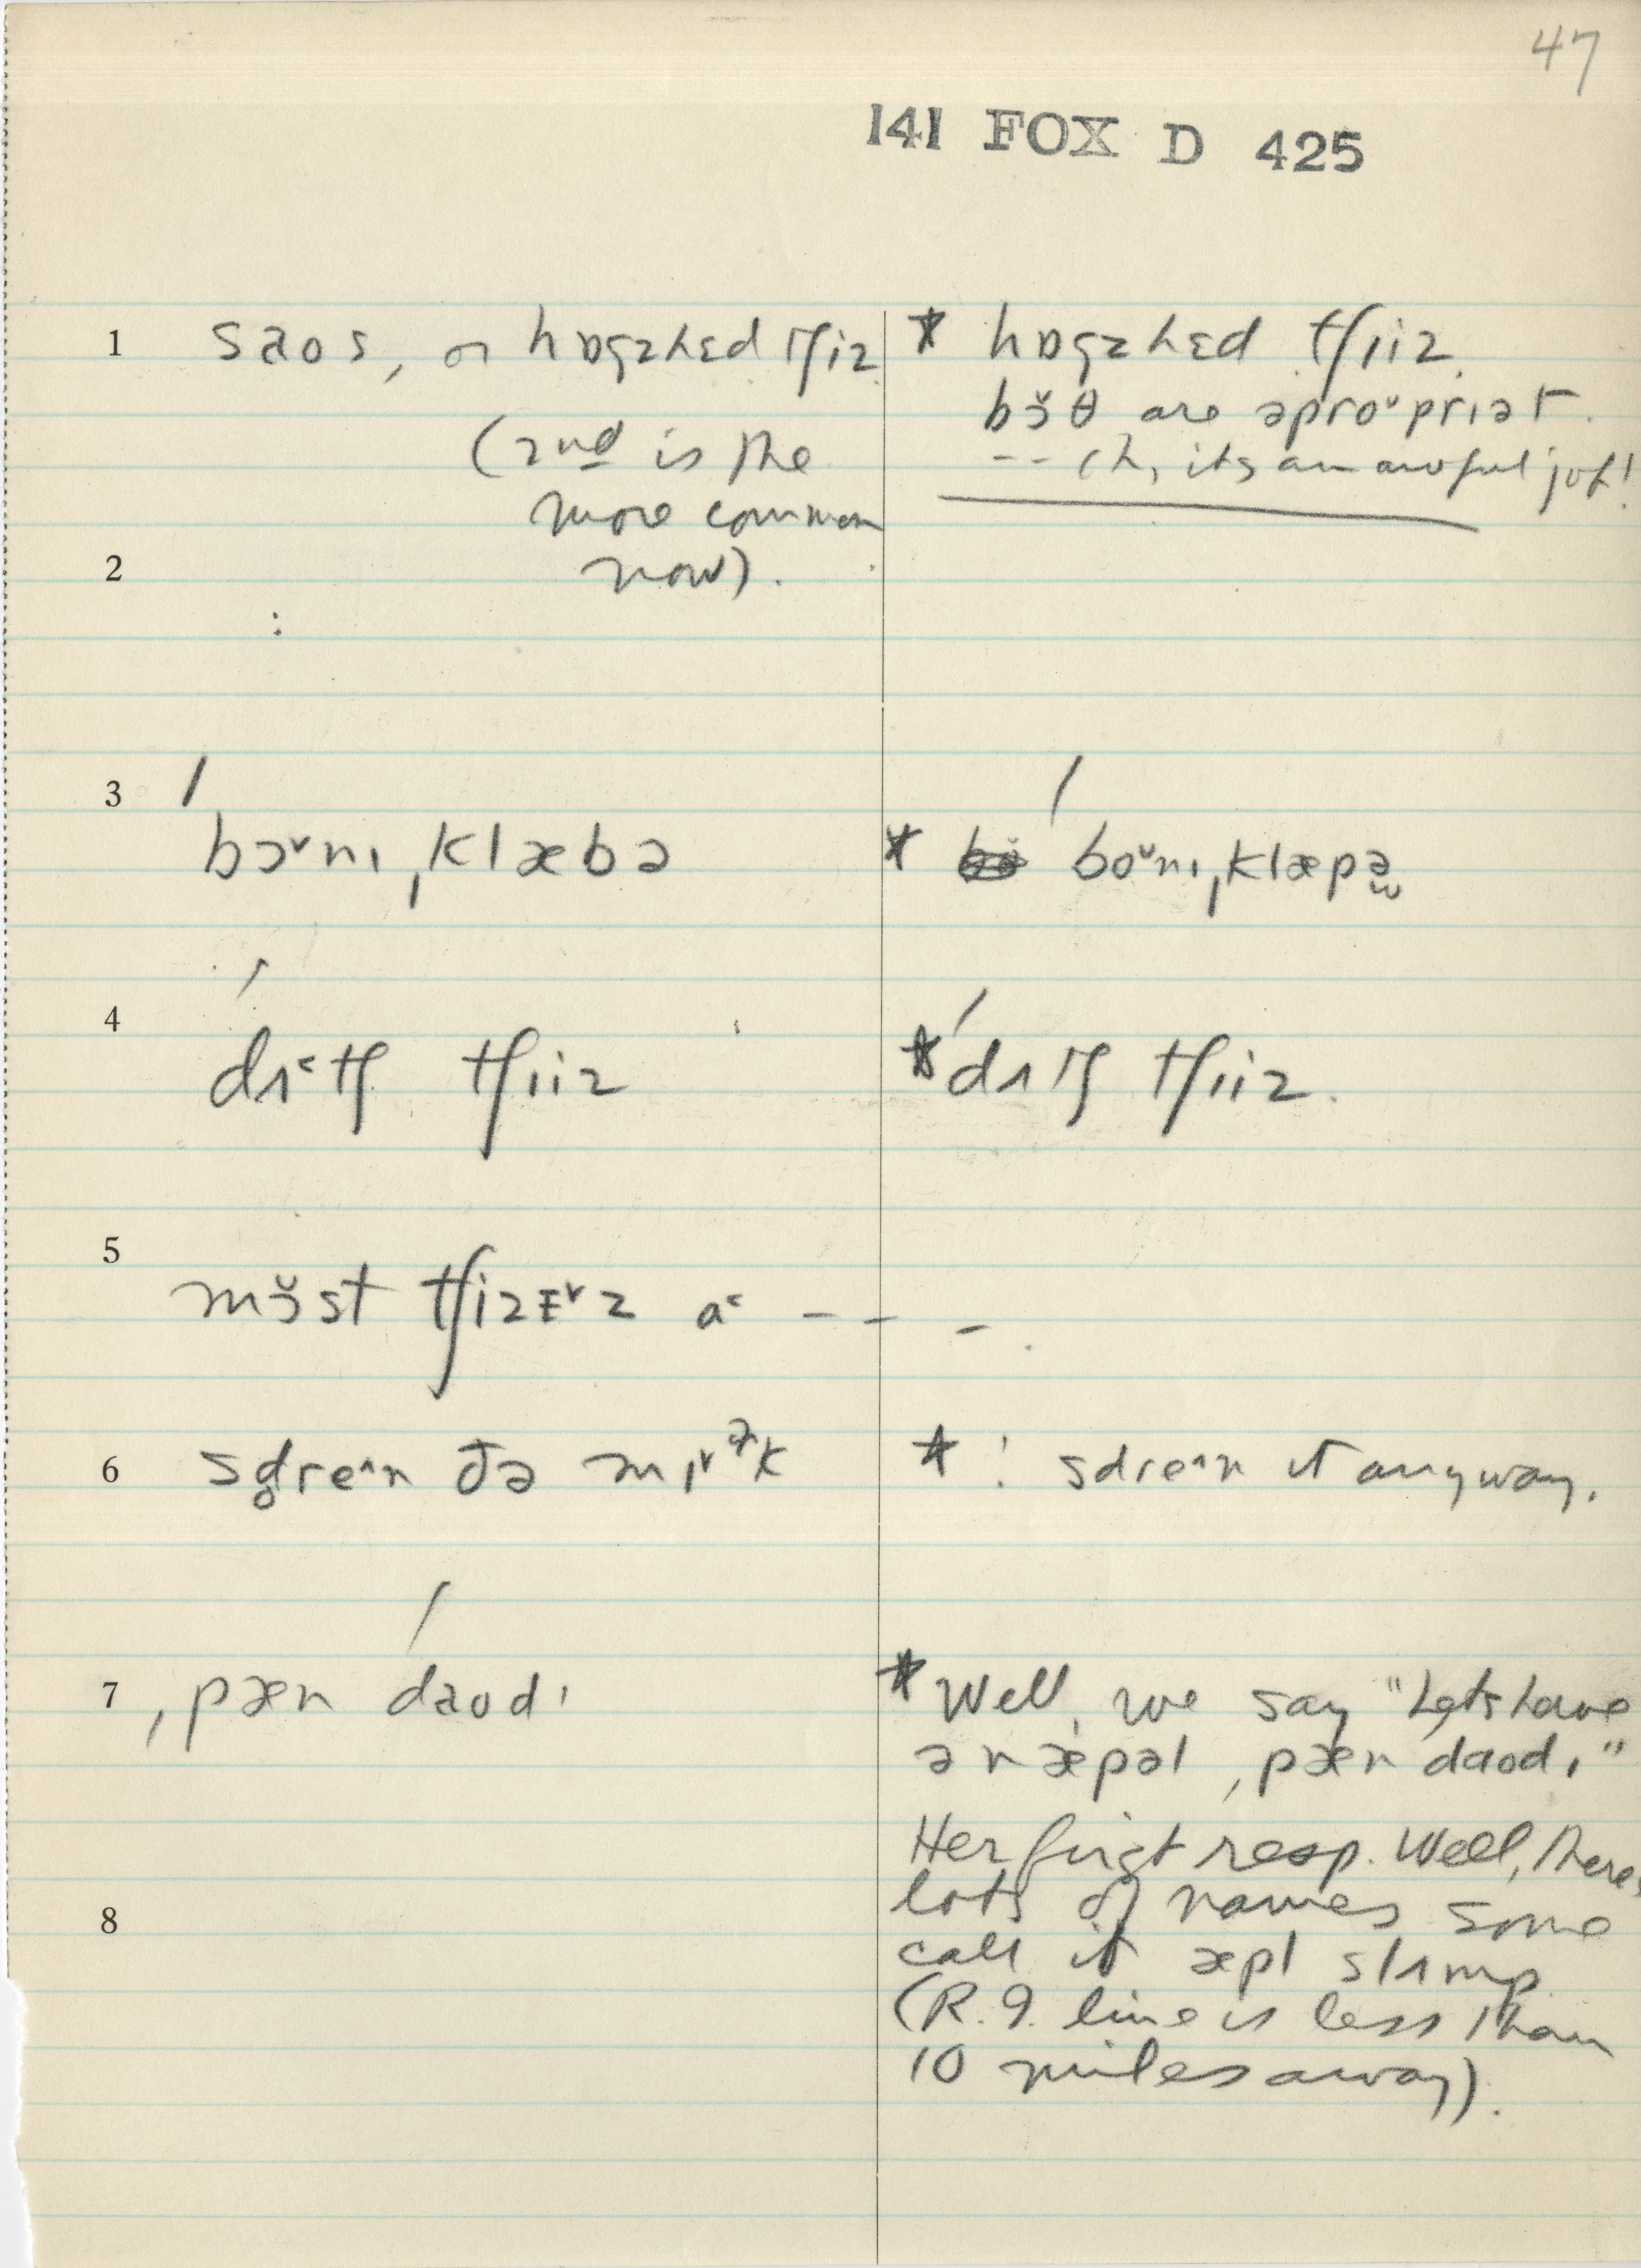 47
141 FOX D 425
1 saos, or hɒgzhɛd tʃiz
(2nd is the
more common
now).
* hɒgzhɛd tʃiiz.
bɔ̆θ are əproᵛpriət.
-- Oh, its an awful job!
2
3 ˈbɔᵛnɪ ˌklæbə
* ˈboᵛnɪ ˌklæpə̮
4 ˈdʌ˂tʃ tʃiiz
* ˈdʌtʃ tʃiiz.
5 mɔ̆st tʃizᵻᵛz a˂ - - -.
6 sd̥re^n ðə mɪᵛᵊk
* : sdre^n it anyway.
7 ˌpæn ˈdaodɪ
* Well, we say "Lets have
ə næpəl ˌpæn daodɪ"
Her first resp. Well, theres
lots of names some
call it æpl slʌmp
8
(R.I. line is less than
10 miles away).